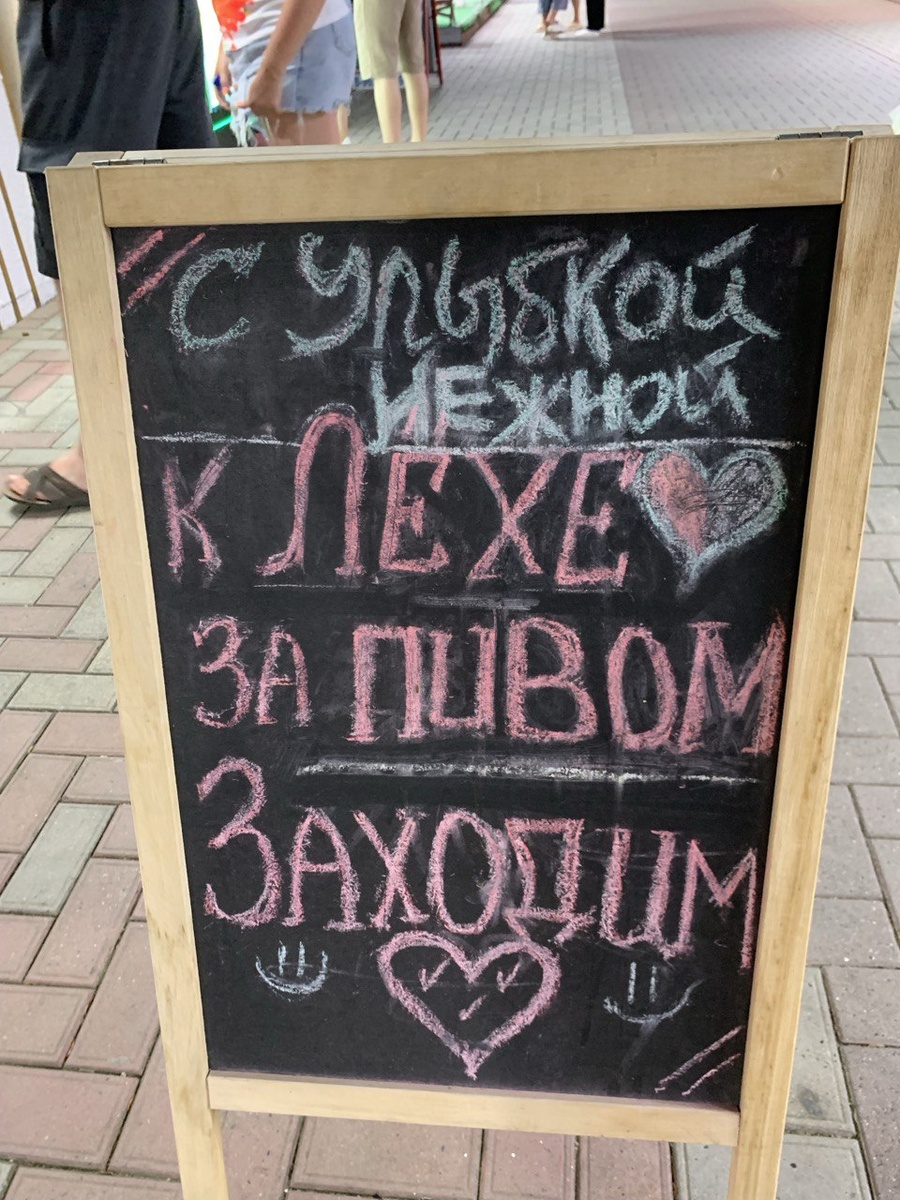 С УЛЫБКОЙ
НЕЖНОЙ
К ЛЁХЕ
ЗА ПИВОМ
ЗАХОДИМ